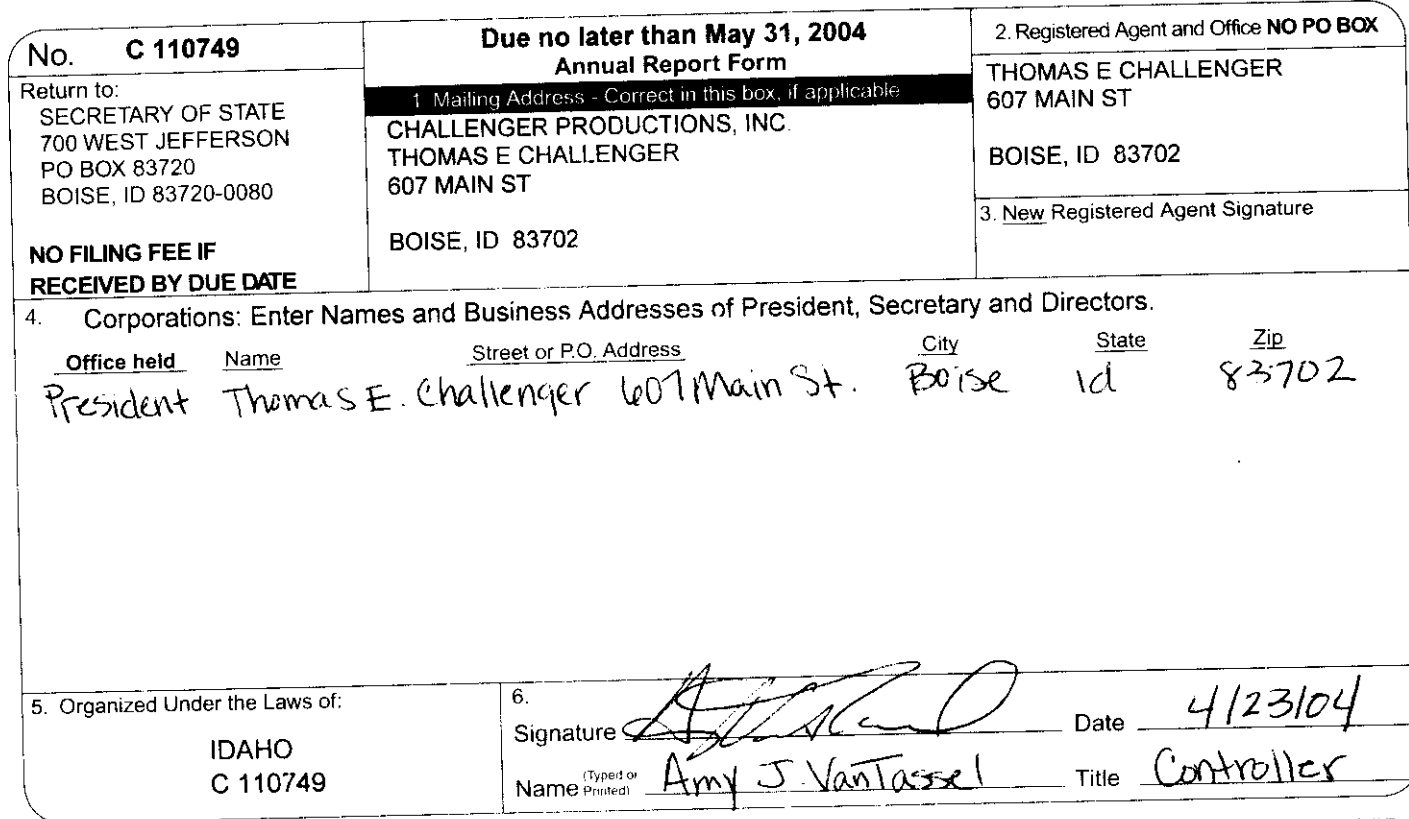 No. C 110749
Return to:
SECRETARY OF STATE
700 WEST JEFFERSON
PO BOX 83720
BOISE, ID 83720-0080
NO FILING FEE IF
RECEIVED BY DUE DATE
Due no later than May 31, 2004
Annual Report Form
1 Mailing Address - Correct in this box, if applicable
CHALLENGER PRODUCTIONS, INC.
THOMAS E CHALLENGER
607 MAIN ST
BOISE, ID 83702
2. Registered Agent and Office NO PO BOX
THOMAS E CHALLENGER
607 MAIN ST
BOISE, ID 83702
3. New Registered Agent Signature
4. Corporations: Enter Names and Business Addresses of President, Secretary and Directors.
Office held Name Street or P.O. Address City State Zip
President Thomas E. Challenger 607 Main St. Boise Id 83702
5. Organized Under the Laws of:
IDAHO
C 110749
6.
Signature Date 4/23/04
Name (Typed or Printed) Amy J. VanTassel Title Controller